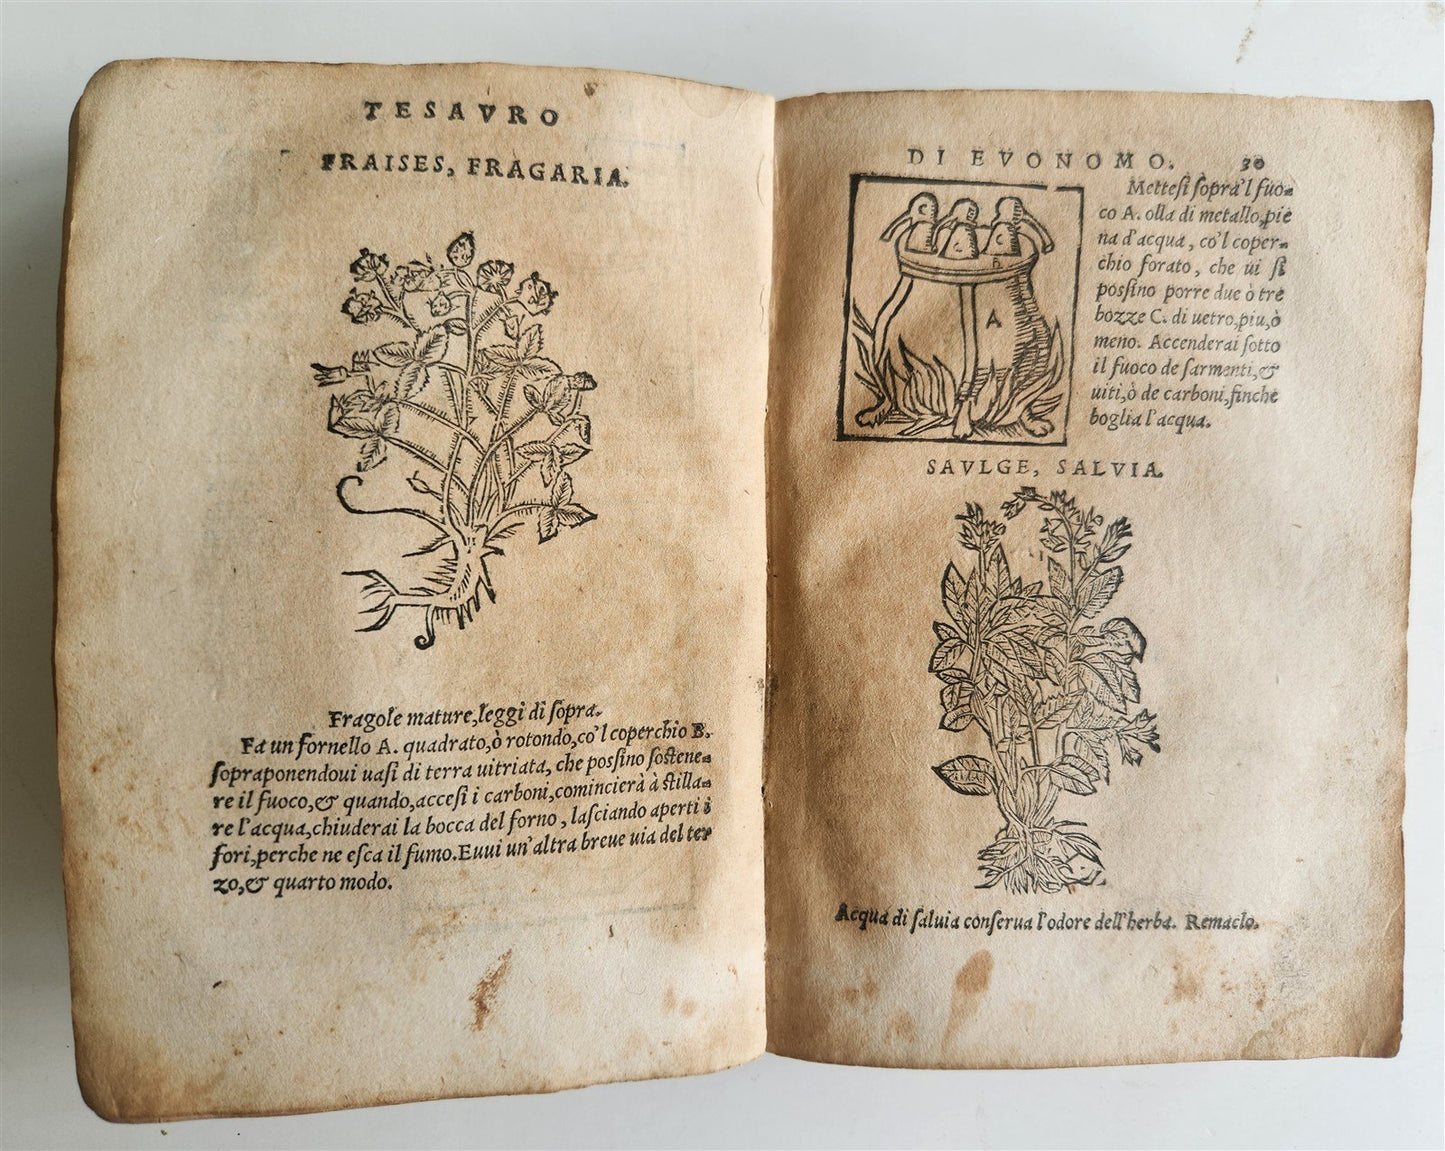 TESAVRO
FRAISES, FRAGARIA.
Fragole mature, leggi di ſopra.
Fa un fornello A. quadrato, ò rotondo, co'l coperchio B.
ſopraponendoui uaſi di terra uitriata, che poſſino ſoſtene-
re il fuoco, & quando, acceſi i carboni, comincierà à ſtilla-
re l'acqua, chiuderai la bocca del forno, laſciando aperti i
fori, perche ne eſca il fumo. Euui un'altra breue uia del ter
zo, & quarto modo.
DI EVONOMO. 30
C
C
C
B
A
Metteſi ſopra'l fuo-
co A. olla di metallo, pie
na d'acqua, co'l coper-
chio forato, che ui ſi
poſſino porre due ò tre
bozze C. di uetro, piu, ò
meno. Accenderai ſotto
il fuoco de ſarmenti, &
uiti, ò de carboni, finche
boglia l'acqua.
SAVLGE, SALVIA.
Acqua di ſaluia conſerua l'odore dell'herba. Remaclo.